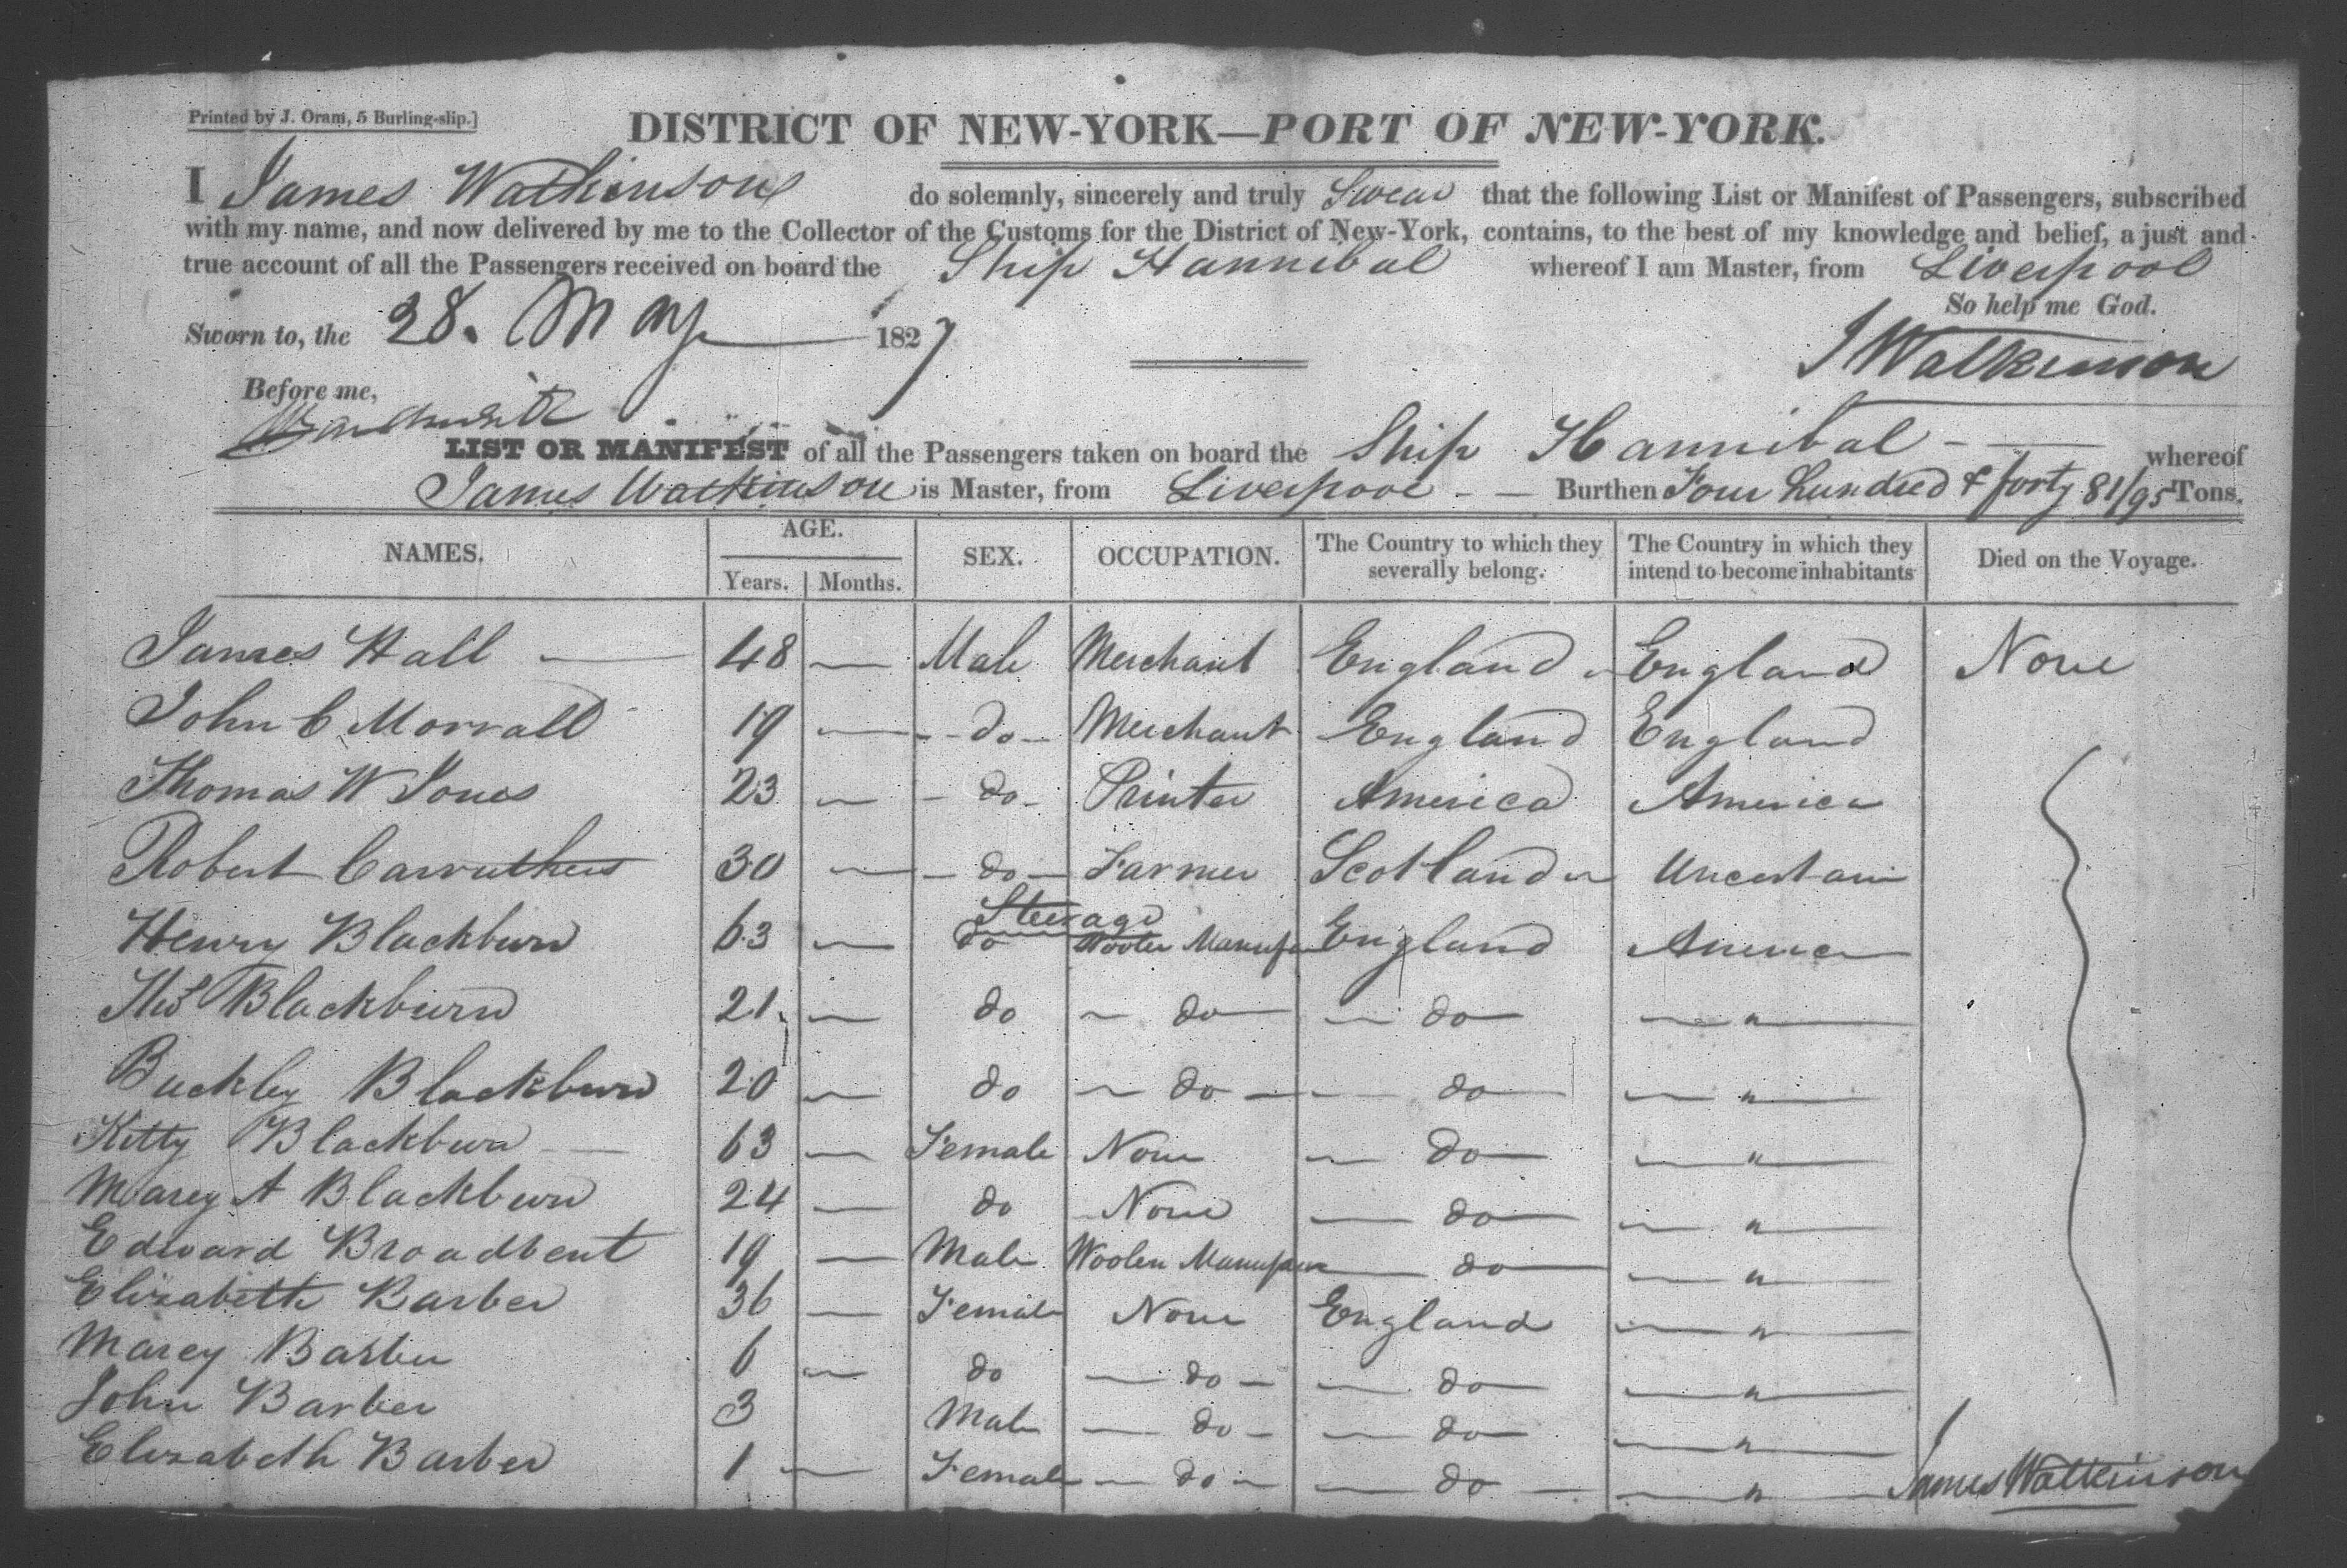 Printed by J. Oram, 5 Burling-slip.]
DISTRICT OF NEW-YORK—PORT OF NEW-YORK.
I James Watkinson do solemnly, sincerely and truly Swear that the following List or Manifest of Passengers, subscribed
with my name, and now delivered by me to the Collector of the Customs for the District of New-York, contains, to the best of my knowledge and belief, a just and
true account of all the Passengers received on board the Ship Hannibal whereof I am Master, from Liverpool
So help me God.
Sworn to, the 28. May 1827
J Watkinson
Before me,
LIST OR MANIFEST of all the Passengers taken on board the Ship Hannibal - — whereof
James Watkinson is Master, from Liverpool - — Burthen Four hundred & forty 81/95 Tons.
NAMES. AGE. SEX. OCCUPATION. The Country to which they severally belong. The Country in which they intend to become inhabitants Died on the Voyage.
Years. Months.
James Hall — 48 — Male Merchant England England None
John C Morrall 19 — do Merchant England England
Thomas W Jones 23 — do Printer America America
Robert Carruthers 30 — do Farmer Scotland Uncertain
Steerage
Henry Blackburn 63 — do Woolen Manufr England America
Thos Blackburn 21 — do do do "
Buckley Blackburn 20 — do do do "
Kitty Blackburn — 63 — Female None do "
Marey A Blackburn 24 — do None do "
Edward Broadbent 19 — Male Woolen Manufacr do "
Elizabeth Barber 36 — Female None England "
Marey Barber 6 — do do do "
John Barber 3 Male do do "
Elizabeth Barber 1 — Female do do "
James Watkinson